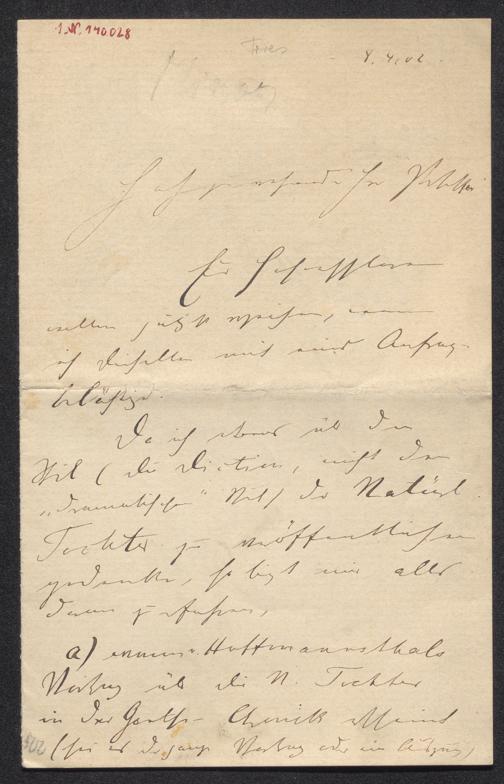 I.N. 140.028
8.4.02.
Hochzuverehrender Herr Professor
Eur Hochwohlgeboren
wollen gütigst verzeihen, wenn
ich dieselben mit einer Anfrage
belästige.
Da ich etwas üb den
Stil (die Diction, nicht den
„dramatischen" Stil) der Natürl.
Tochter zu veröffentlichen
gedenke, so liegt mir alles
daran zu erfahren,
a) wann v. Hoffmannsthals
Vortrag üb die N. Tochter
in der Goethe-Chronik erscheint
(sei es der ganze Vortrag oder ein Auszug)